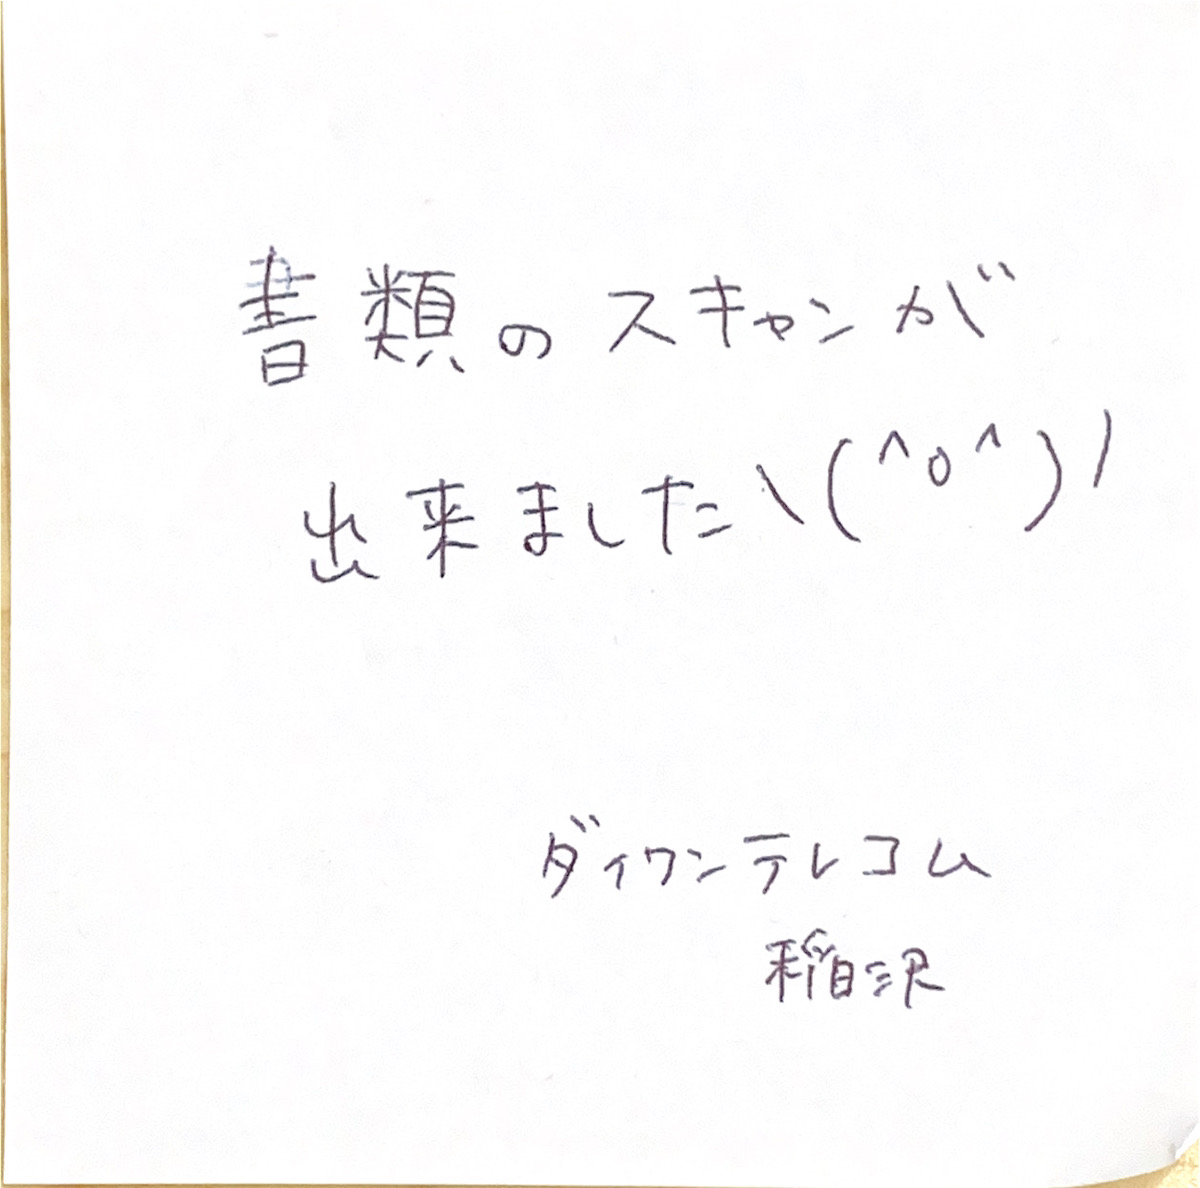 書類のスキャンが
出来ました\(^o^)/
ダイワンテレコム
稲沢